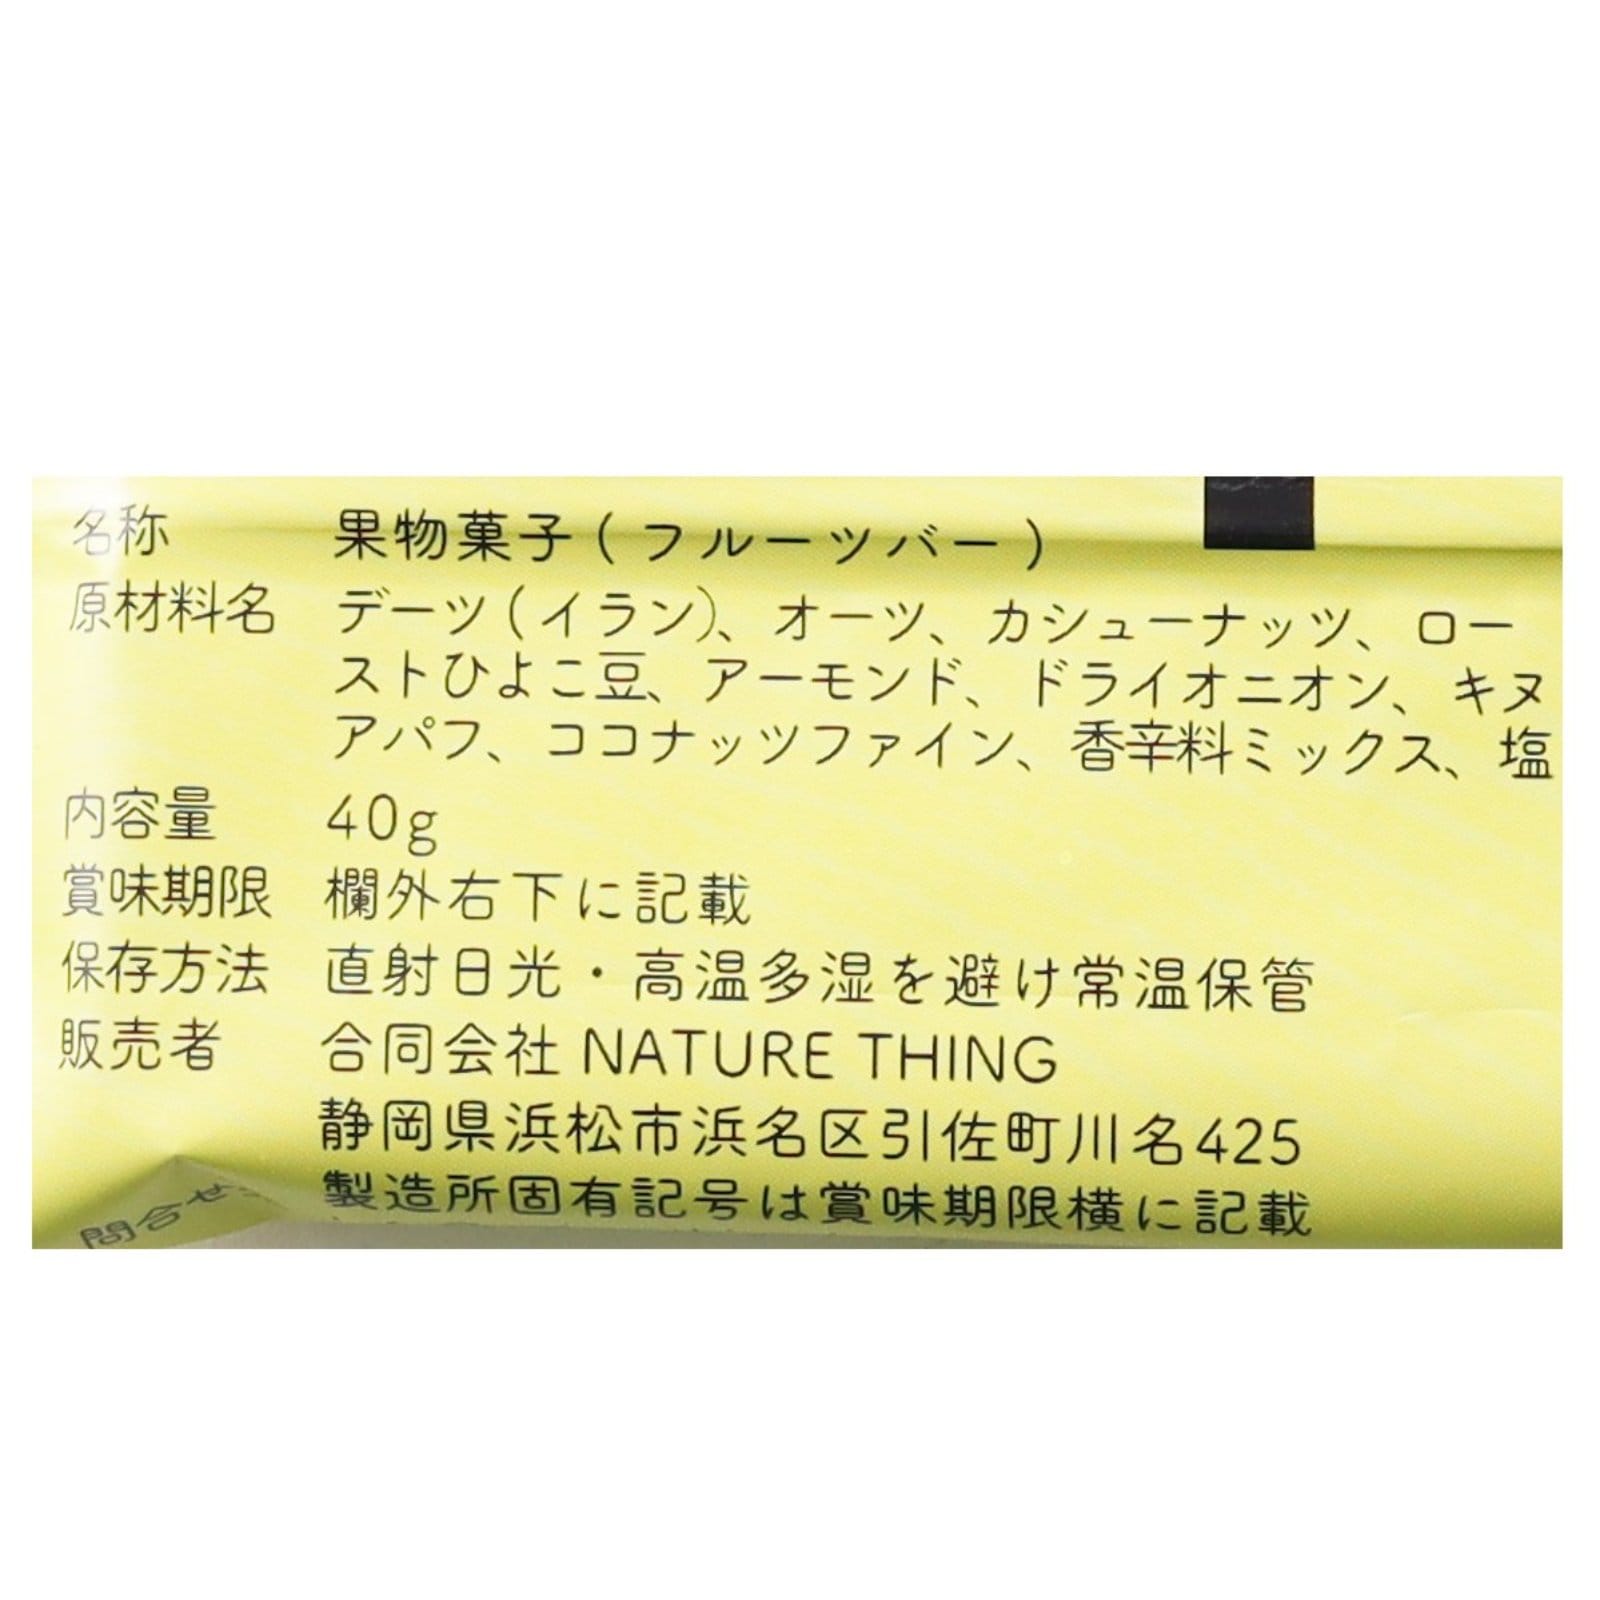 名称 果物菓子(フルーツバー)
原材料名 デーツ(イラン)、オーツ、カシューナッツ、ロー
ストひよこ豆、アーモンド、ドライオニオン、キヌ
アパフ、ココナッツファイン、香辛料ミックス、塩
内容量 40g
賞味期限 欄外右下に記載
保存方法 直射日光・高温多湿を避け常温保管
販売者 合同会社 NATURE THING
静岡県浜松市浜名区引佐町川名425
製造所固有記号は賞味期限横に記載
問合せ